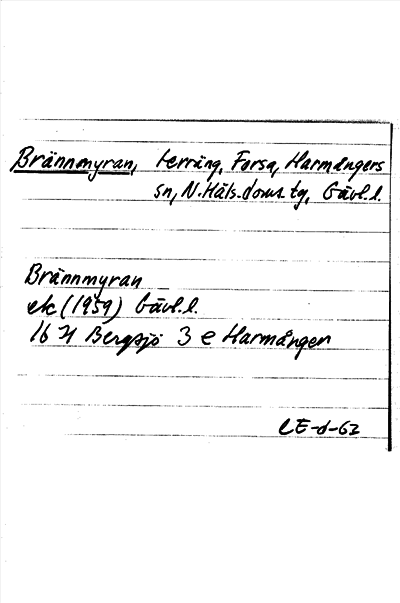 Brännmyran, terräng, Forsa, Harmångers
sn, N.Häls.doms.tg, Gävl.l.
Brännmyran
ek (1959) Gävl.l.
16 H Bergsjö 3 e Harmånger
CE-d-63